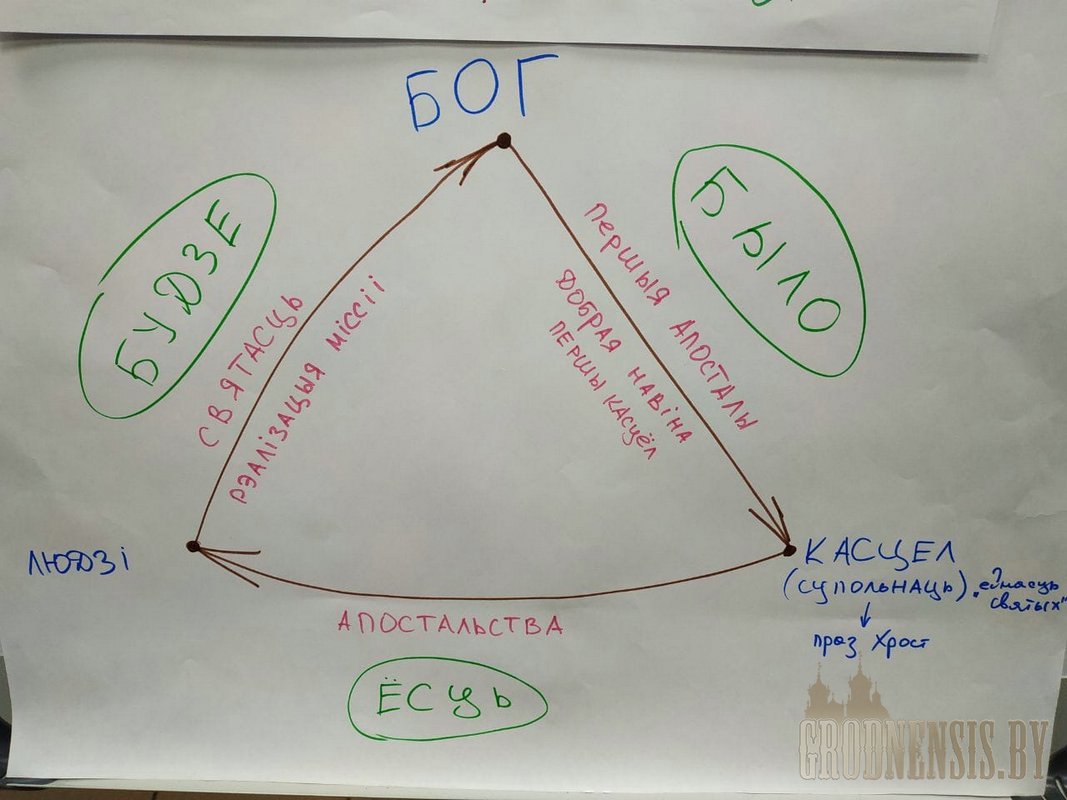 БОГ
БУДЗЕ
БЫЛО
СВЯТАСЦЬ
РЭАЛІЗАЦЫЯ МІССІІ
ПЕРШЫЯ АПОСТАЛЫ
ДОБРАЯ НАВІНА
ПЕРШЫ КАСЦЁЛ
ЛЮДЗІ
КАСЦЕЛ
(СУПОЛЬНАЦЬ)
святых"
праз Хрост
АПОСТАЛЬСТВА
ЁСЦЬ
GRODNENSIS.BY